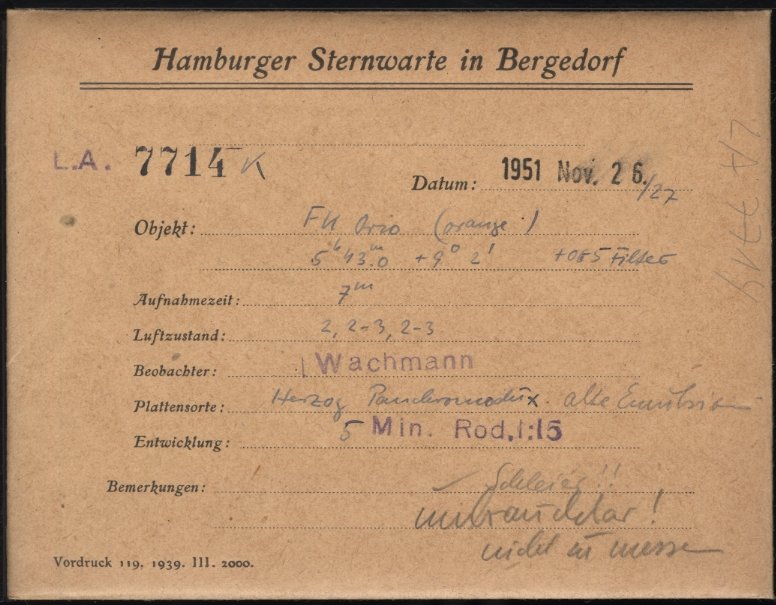 Hamburger Sternwarte in Bergedorf
L.A. 7714 K
Datum: 1951 Nov. 26./27
Objekt: FU Orio (orange)
5h 43m.0 +9° 2' +OG5 Filter
Aufnahmezeit: 7m
Luftzustand: 2, 2-3, 2-3
Beobachter: Wachmann
Plattensorte: Herzog alte Emulsion
Entwicklung: 5 Min. Rod. 1:15
Bemerkungen: Schleier!!
unbrauchbar!
nicht zu messen
Vordruck 119. 1939. III. 2000.
LA 7714